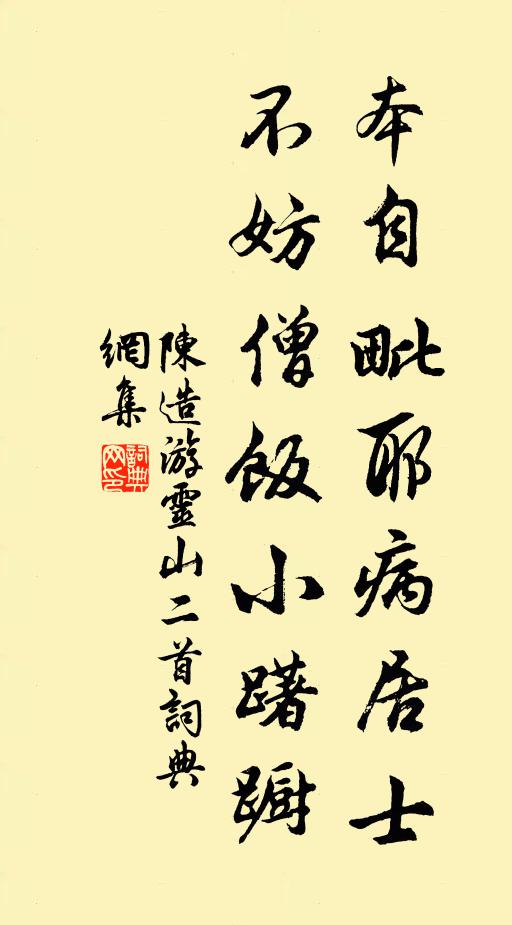 本自毗耶病居士
不妨僧飯小躇躕
陳造游靈山二首詞典
網集
詞典
网印